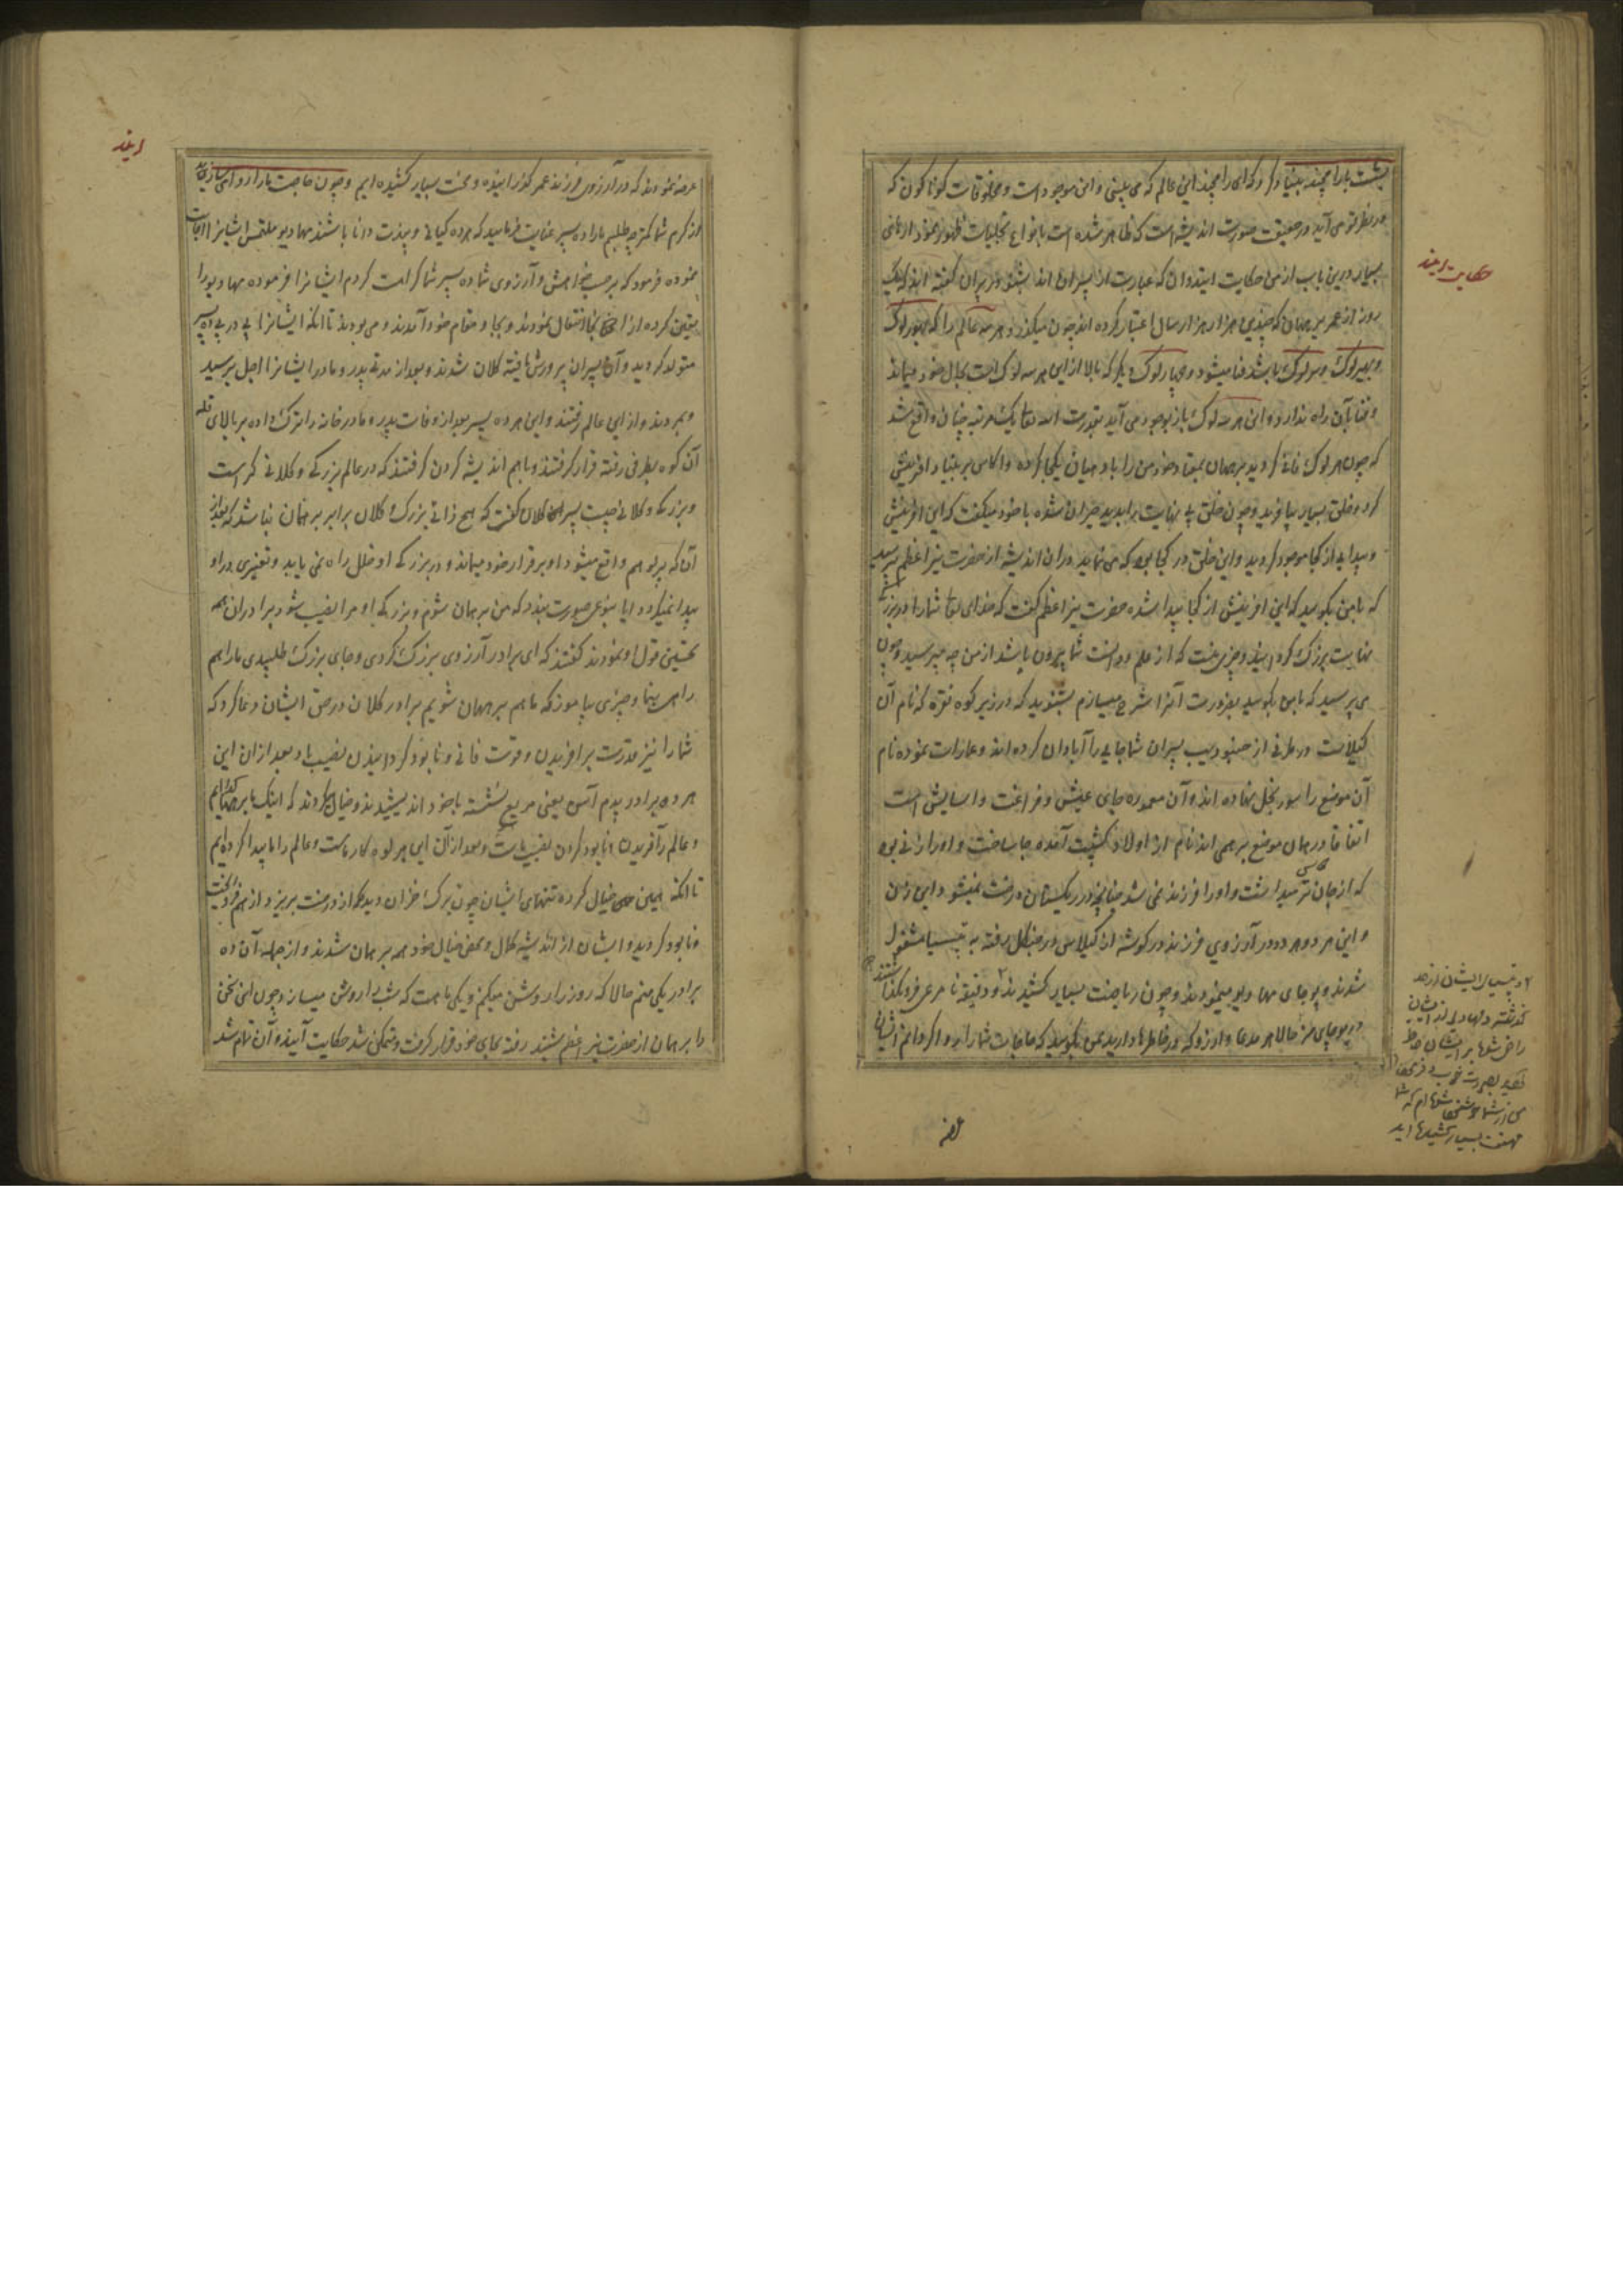 بشست باز رامچند بسیار کرد که ای رامچند این عالم که می بینی و این موجود است و مخلوقات کوناکون که
در نظر تو می آید در حقیقت صورت اندیشه است که ظاهر شده است بانواع تجلیات ظهور نموده
بسیار درین باب از من حکایت ایند و آن که عبارت از پسران اند بشنو
حکایت ایند
روز از عمر برهمان که چندین هزار هزار سال اعتبار کرده اند چون میکذرد هر سه عالم را که بهور لوک
و بهیر لوک و سر لوک باشد فنا میشود و چهار لوک دیکر که بالا از این هر سه لوک است بحال خود میماند
و فنا بآن راه ندارد و این هر سه لوک باز بوجود می آید بقدرت الله تعا یک مرتبه چنان واقع شد
که چون هر لوک فانی کردید برهمان بمقام خود من را با دهیان یکجا کرده و اکاس بر بنیاد آفرینش
کرد و خلق بسیار بیافرید و چون خلق بی نهایت را بدید حیران شده با خود میکفت که این آفرینش
و پیدایی از کجا موجود کردید و این خلق در کجا بود که می نماید در آن اندیشه از حضرت نیر اعظم پرسید
که با من بکویید که این آفرینش از کجا پیدا شده حضرت نیر اعظم کفت که خدای تعا شما را در بزرکی
نهایت بزرک کردانیده و چیزی نیست که از علم و دانست شما بیرون باشد از من چه میپرسید و چون
می پرسید که با من بکویید بضرورت آنرا شرح میسازم بشنوید که در زیر کوه نقره که نام آن
کیلاس است در طرفی از جنبو دیپ پسران شما جایی را آبادان کرده اند و عمارات نموده نام
آن موضع را سورنجل نهاده اند و آن معموره جای عیش و فراغت و آسایش است
اتفاقا در همان موضع برهمنی اندنام از اولاد کشیپ آمده جا ساخت و او را زنی بود
که از جان ترمیداشت و او را فرزند نمی شد چنانچه در ریکستان درخت نمیشود این زن
و این مرد هر دو در آرزوی فرزند در کوشه از کیلاس در جنکل رفته به تپسیا مشغول
شدند و پوجای مهادیو مینمودند و چون ریاضت بسیار کشیدند و دقیقه نامرعی فرو نکذاشتند
حالا هر مدعا و آرزو که در خاطرها دارید بمن بکویید که حاجات شما را روا کردانم ایشان
تپسیای ایشان از حد
کذشت و مهادیو از ایشان
راضی شده بر ایشان ظاهر
من از شما خوشنود شده ام که شما
محنت بسیار کشیده اید
عرضه نمودند که در آرزوی فرزند عمر کذرانیده و محنت بسیار کشیده ایم و چون حاجت ما را روا می سازید
از کرم شما کمتر چه طلبیم ما را ده پسر عنایت فرمایید که هر ده کیانی و پندت و دانا باشند مهادیو ملتمس ایشانرا اجابت
نموده فرمود که بر حسب خواهش و آرزوی شما ده پسر بشما کرامت کردم ایشانرا فرموده مهادیو را
یقین کرده از انجا انتقال نمودند و بجا و مقام خود آمدند و می بودند تا انکه ایشانرا پی در پی ده پسر
متولد کردید و آن پسران پرورش یافته کلان شدند و بعد از مدتی پدر و مادر ایشانرا اجل برسید
و بمردند و از این عالم رفتند و این هر ده پسر بعد از وفات پدر و مادر خانه را ترک داده بر بالای قله
آن کوه بطرفی رفته قرار کرفتند و باهم اندیشه کردن کرفتند که در عالم بزرکی و کلانی کراست
و بزرکی و کلانی چیست پسر کلان کفت که هیچ ذاتی بزرک و کلان برابر برهمان نباشد که بعد از
آن که پرلو هم واقع میشود او بر قرار خود میماند و در بزرکی او خلل راه نمی یابد و تغییری در او
پیدا نمیکردد آیا بنوعی صورت بندد که من برهمان شوم و بزرکی او مرا نصیب شود برادران همه
تحسین قول او نمودند کفتند که ای برادر آرزوی بزرک کردی و جای بزرک طلبیدی ما را هم
راه بنما و چیزی بیاموز که ما هم برهمان شویم برادر کلان در حق ایشان دعا کرد که
شما را نیز قدرت بر آفریدن و قوت فانی و نابود کردانیدن نصیب باد بعد از آن این
هر ده برادر پدم آسن یعنی مربع نشسته با خود اندیشیدند و خیال کردند که اینک ما برهمان شده ایم
و عالم را آفریدن و نابود کردن نصیب ماست و بعد از آن این هر لوک کار ماست و عالم را ما پیدا کرده ایم
تا انکه همین خیال کرده تنهای ایشان چون برک خزان دیده که از درخت بریزد از هم فرو ریخت
و نابود کردید و ایشان از اندیشه کمال و محض خیال خود همه برهمان شدند و از جمله آن ده
برادر یکی منم حالا که روز را روشن میکنم و یکی ماه است که شب را روشن میسازد و چون این سخن
را برهمان از حضرت نیر اعظم شنید رفته بجای خود قرار کرفت و متمکن شد حکایت آیند و آن تمام شد
ایند